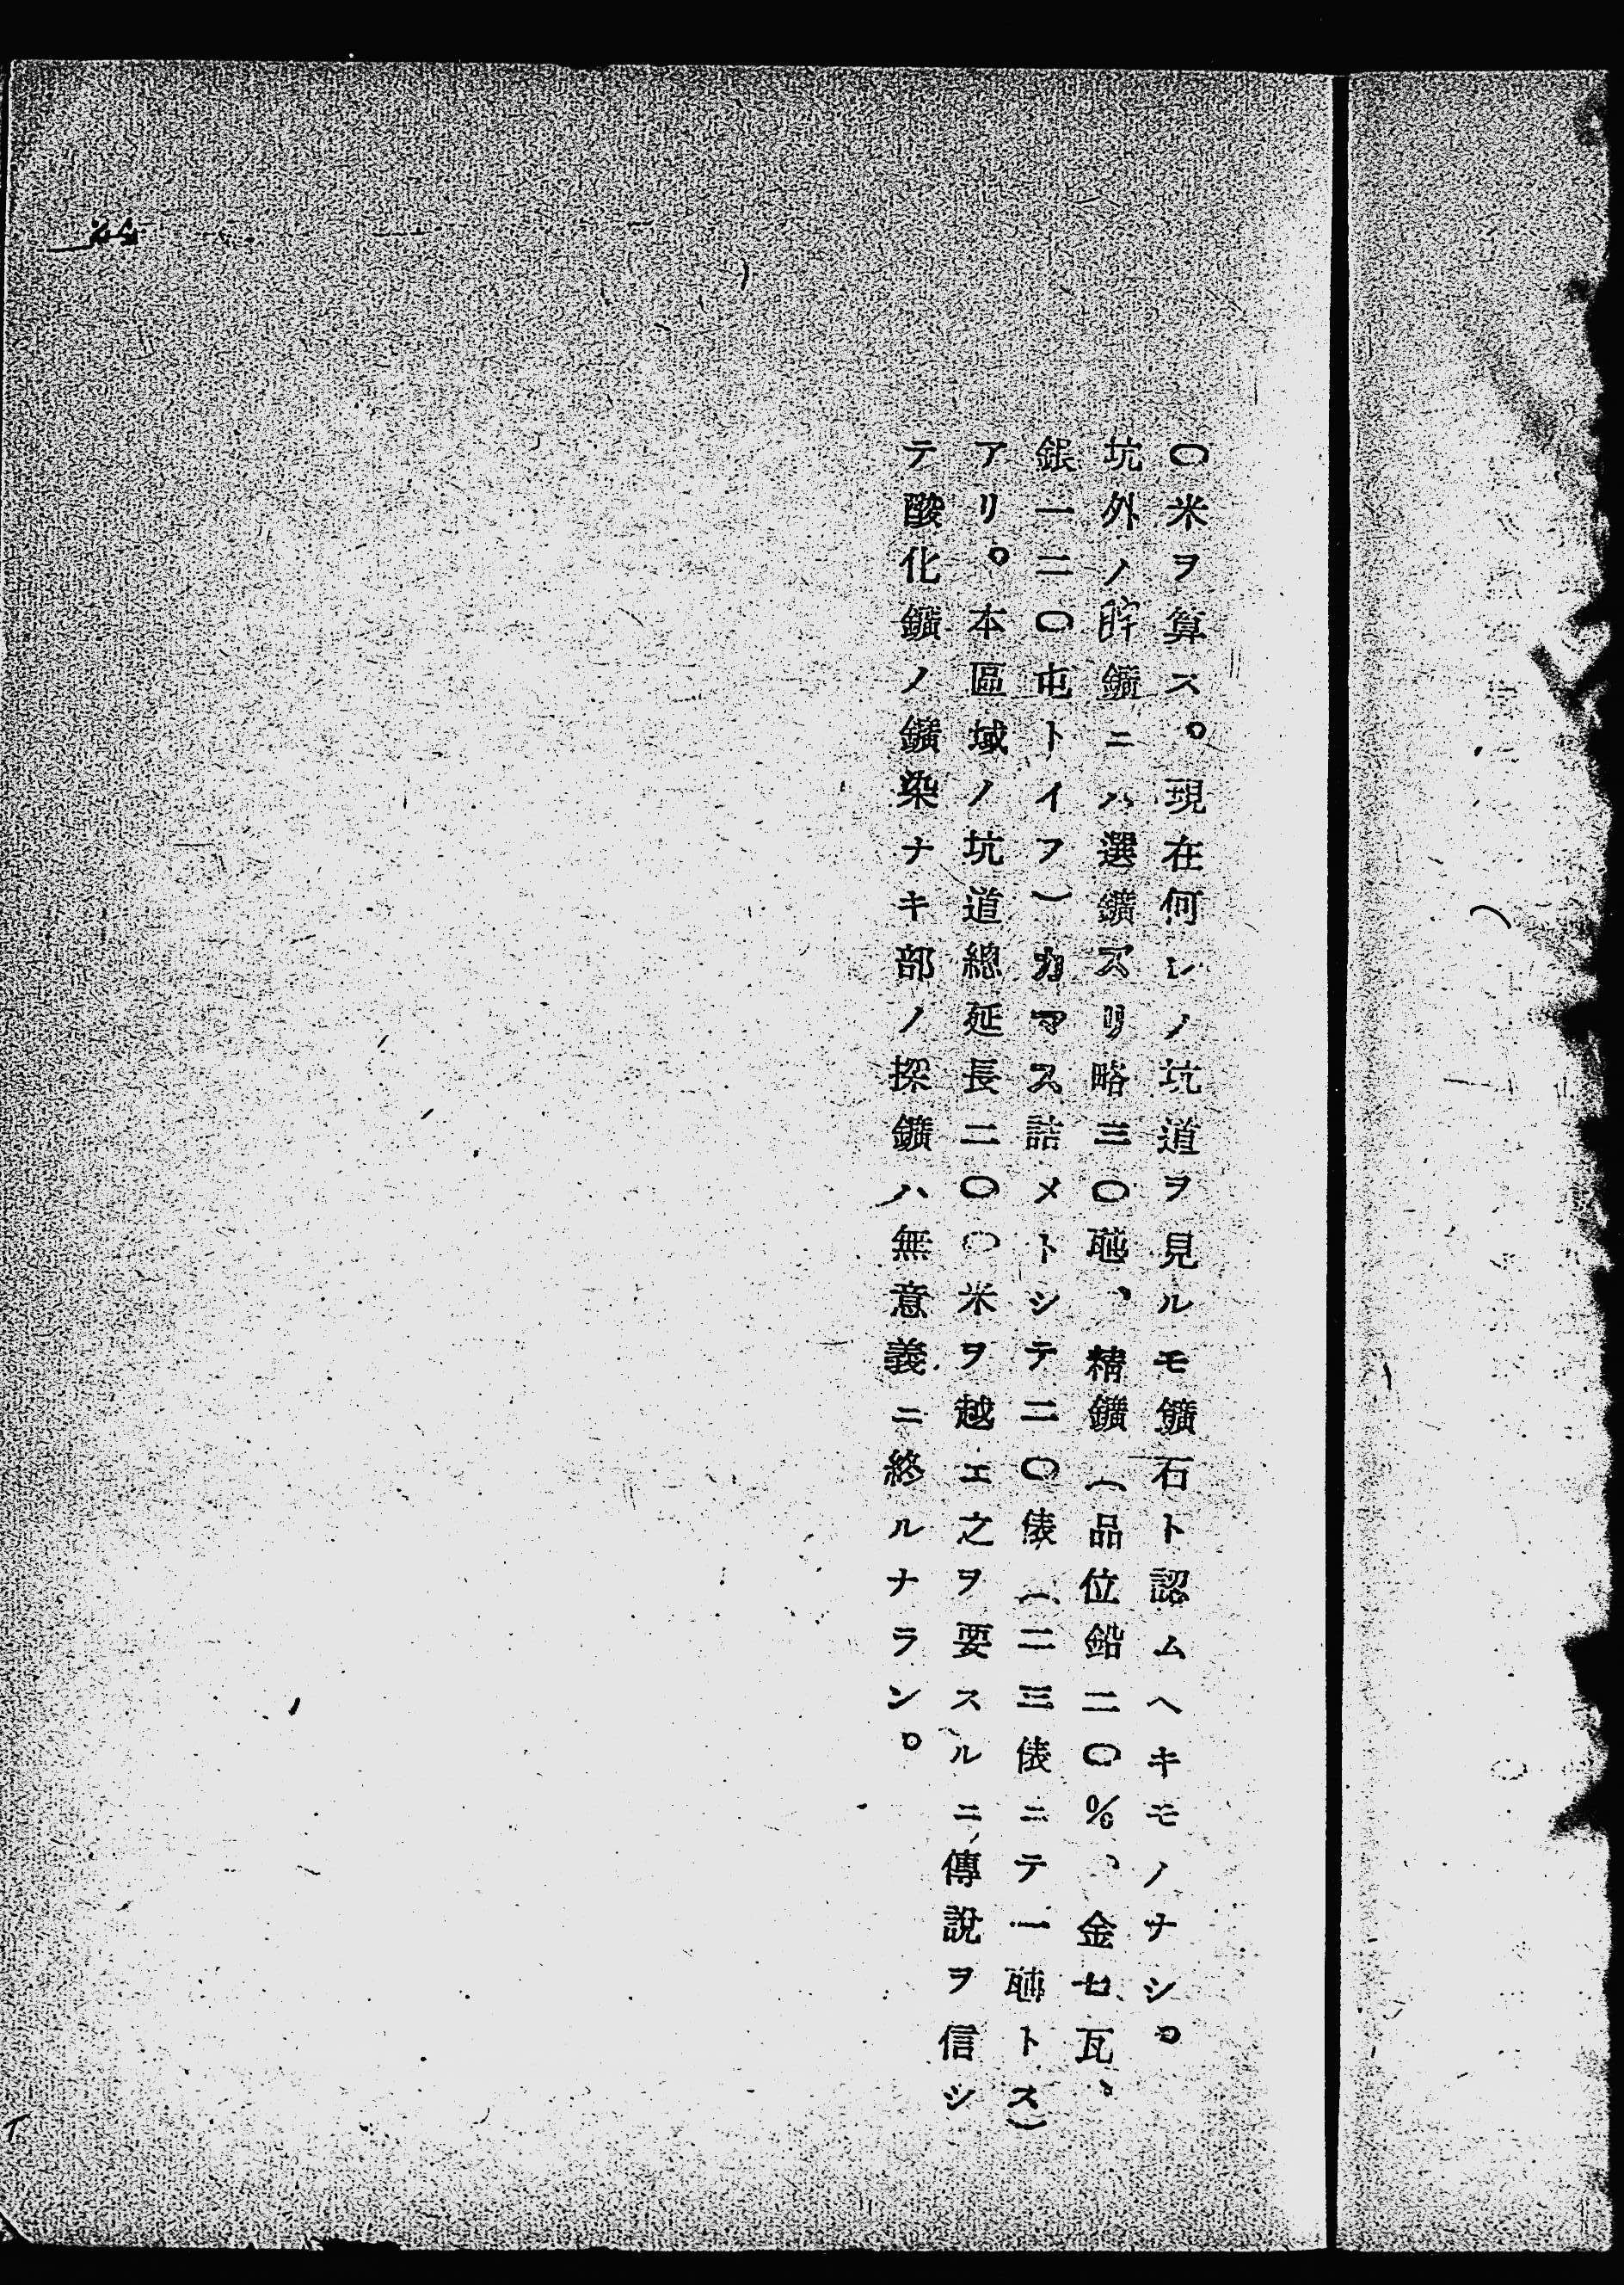 〇米ヲ算ス。現在何レノ坑道ヲ見ルモ鑛石ト認ムヘキモノナシ。
坑外ノ貯鑛ニハ選鑛ズリ略三〇瓲、精鑛(品位鉛二〇%、金七瓦、
銀一二〇屯トイフ)カマス詰メトシテ二〇俵(二三俵ニテ一瓲トス)
アリ。本區域ノ坑道總延長二〇〇米ヲ越エ之ヲ要スルニ傳說ヲ信シ
テ酸化鑛ノ鑛染ナキ部ノ探鑛ハ無意義ニ終ルナラン。
24